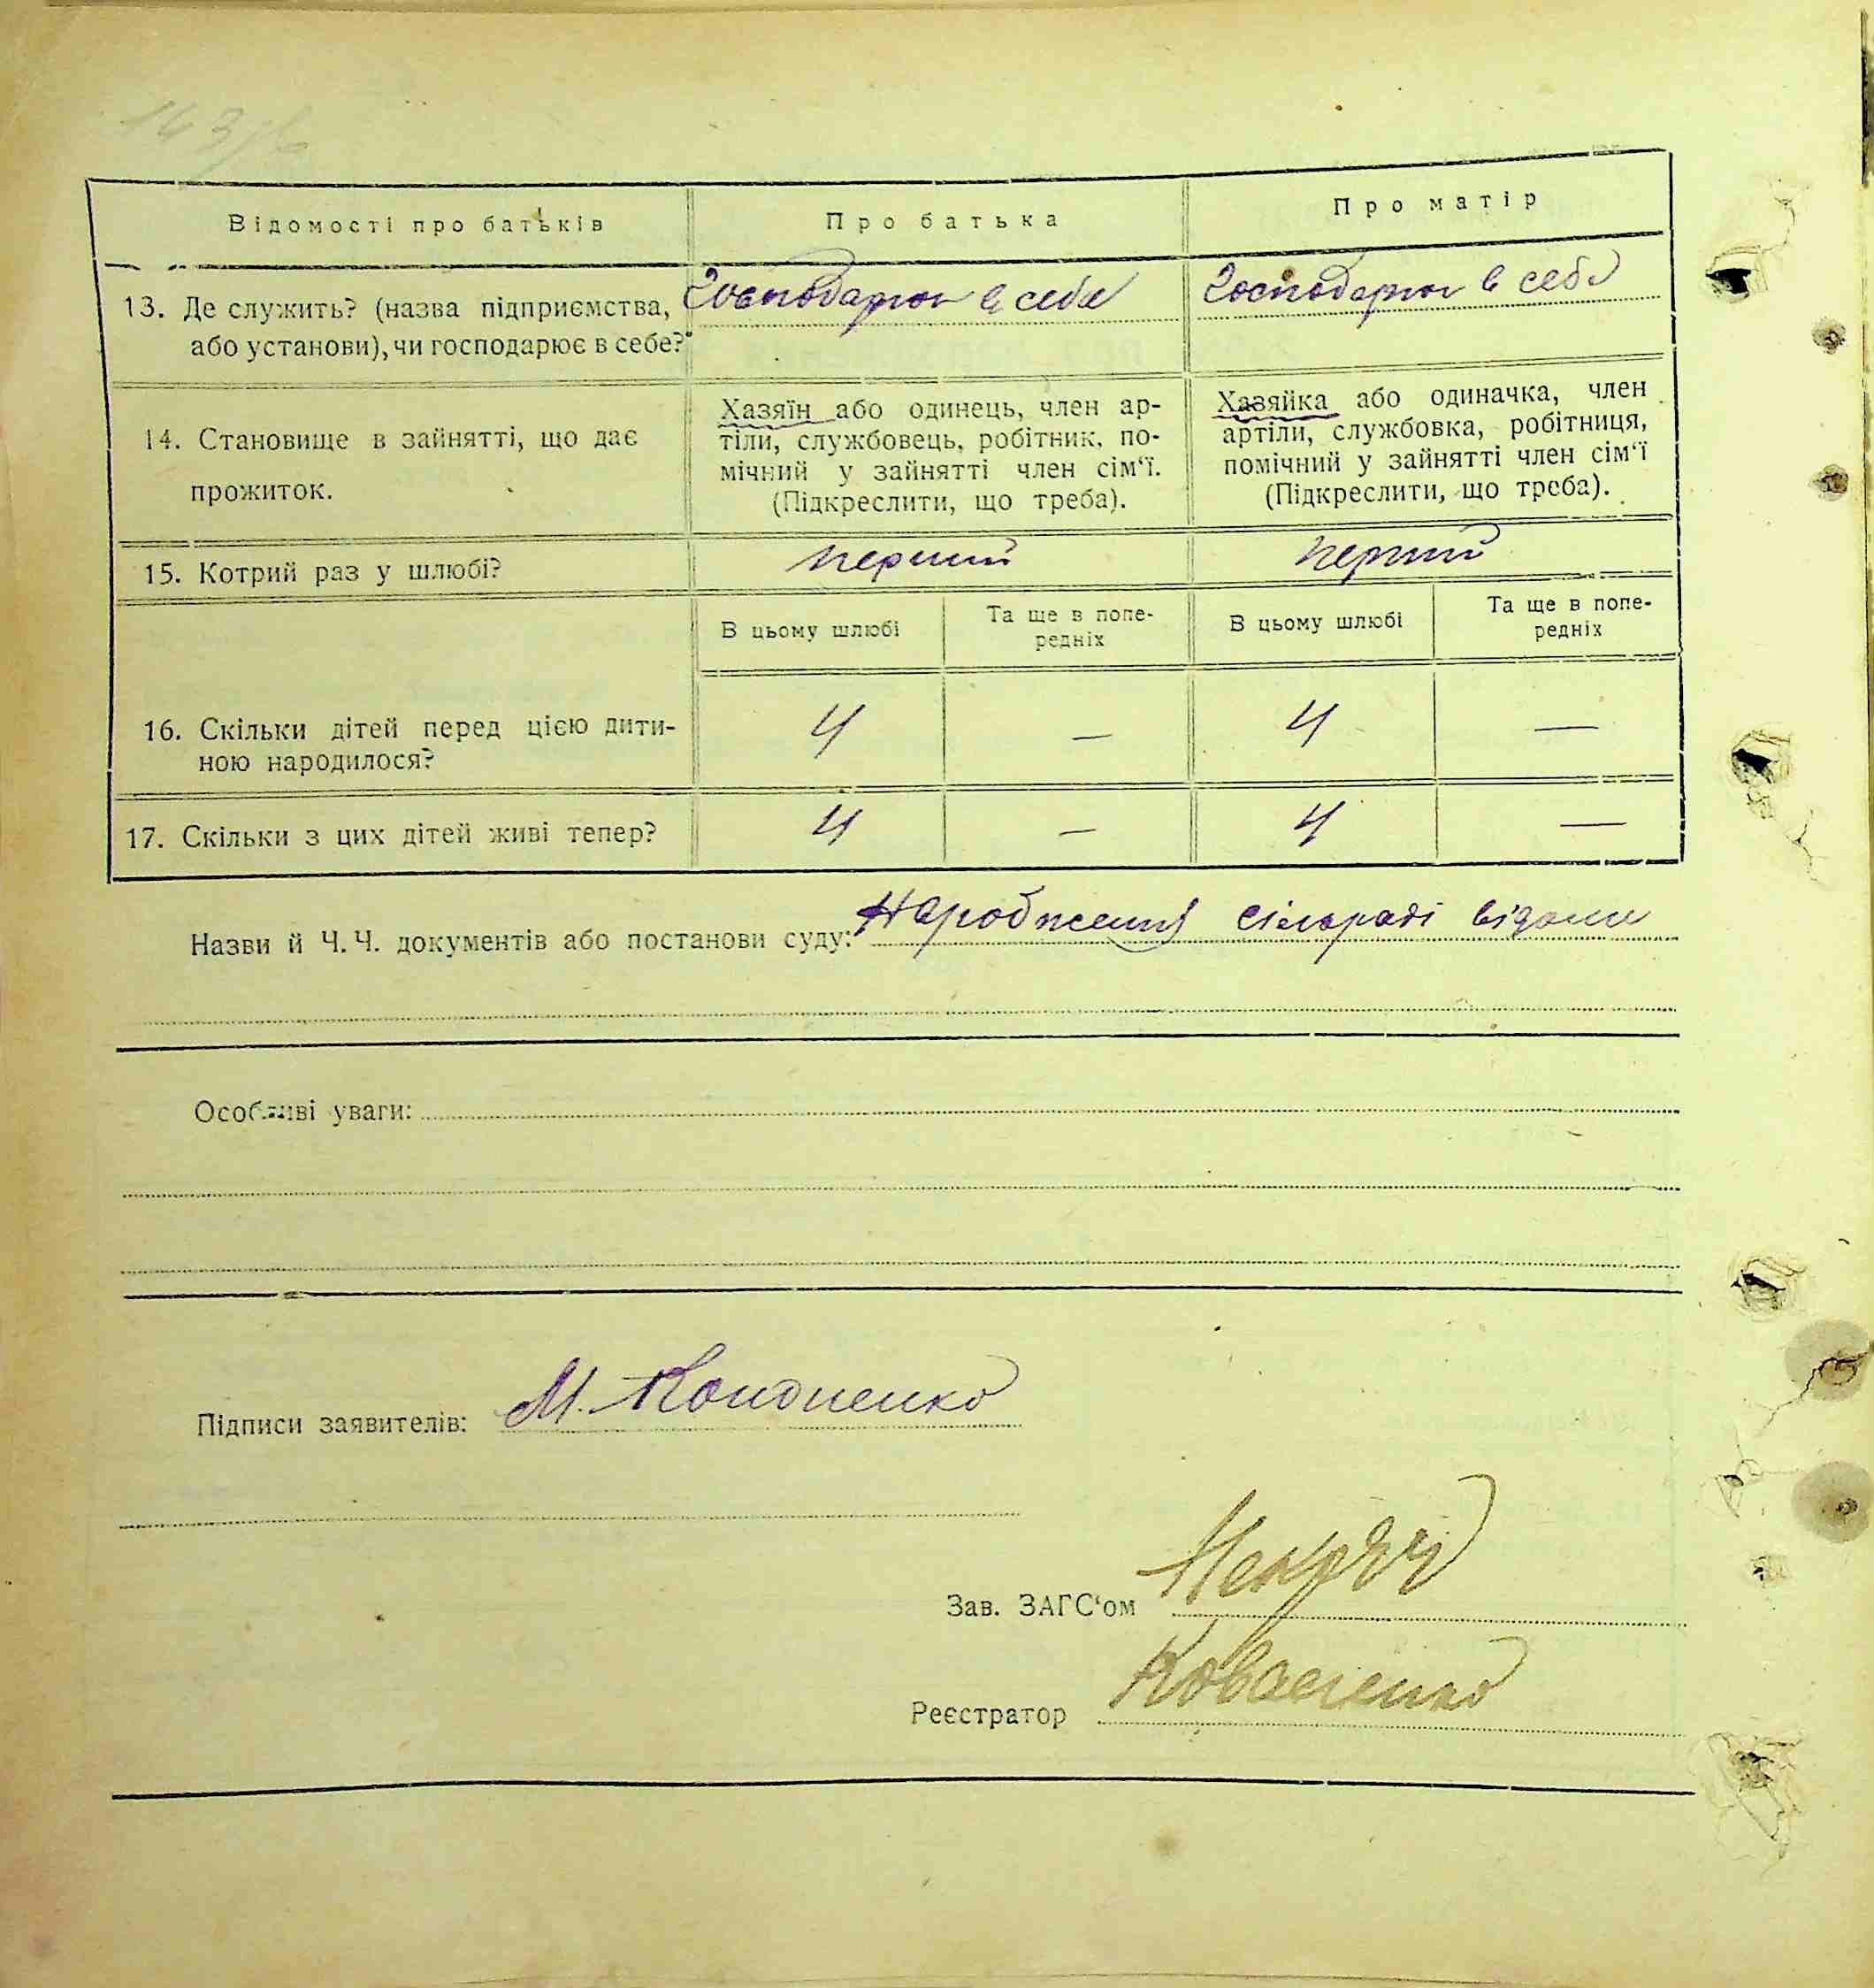 Відомості про батьків Про батька Про матір
13. Де служить? (назва підприємства, або установи), чи господарює в себе?
господарює в себе
господарює в себе
14. Становище в зайнятті, що дає прожиток.
Хазяїн або одинець, член ар-
тіли, службовець, робітник, по-
мічний у зайнятті член сім'ї.
(Підкреслити, що треба).
Хазяйка або одиначка, член
артіли, службовка, робітниця,
помічний у зайнятті член сім'ї
(Підкреслити, що треба).
15. Котрий раз у шлюбі? перший перший
В цьому шлюбі Та ще в попе-
редніх В цьому шлюбі Та ще в попе-
редніх
16. Скільки дітей перед цією дити-
ною народилося? 4 — 4 —
17. Скільки з цих дітей живі тепер? 4 — 4 —
Назви й Ч. Ч. документів або постанови суду: Народження сільраді відоми
Особливі уваги:
Підписи заявителів: М.
Зав. ЗАГС'ом
Реєстратор Коваленко